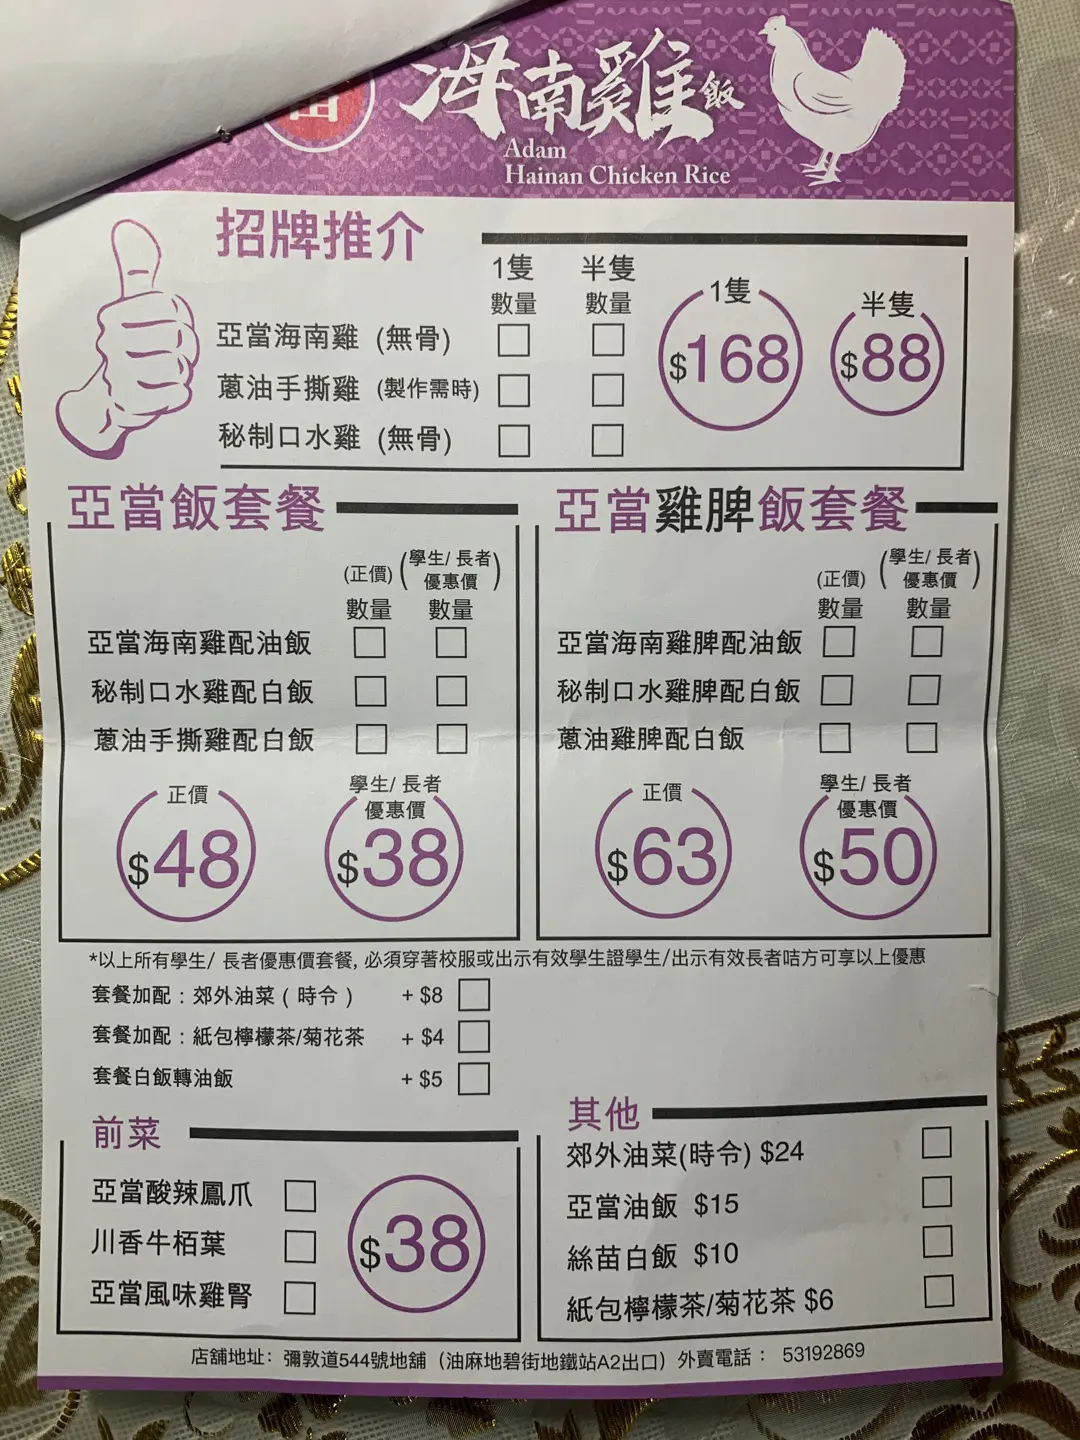 海南雞飯
Adam
Hainan Chicken Rice
招牌推介
1隻 半隻
數量 數量
亞當海南雞 (無骨)
蔥油手撕雞 (製作需時)
秘制口水雞 (無骨)
1隻
$168
半隻
$88
亞當飯套餐
(正價) (學生/ 長者優惠價)
數量 數量
亞當海南雞配油飯
秘制口水雞配白飯
蔥油手撕雞配白飯
正價
$48
學生/ 長者
優惠價
$38
亞當雞脾飯套餐
(正價) (學生/ 長者優惠價)
數量 數量
亞當海南雞脾配油飯
秘制口水雞脾配白飯
蔥油雞脾配白飯
正價
$63
學生/ 長者
優惠價
$50
*以上所有學生/ 長者優惠價套餐, 必須穿著校服或出示有效學生證學生/出示有效長者咭方可享以上優惠
套餐加配：郊外油菜 ( 時令 ) + $8
套餐加配：紙包檸檬茶/菊花茶 + $4
套餐白飯轉油飯 + $5
前菜
亞當酸辣鳳爪
川香牛栢葉
亞當風味雞腎
$38
其他
郊外油菜(時令) $24
亞當油飯 $15
絲苗白飯 $10
紙包檸檬茶/菊花茶 $6
店舖地址：彌敦道544號地舖（油麻地碧街地鐵站A2出口）外賣電話： 53192869